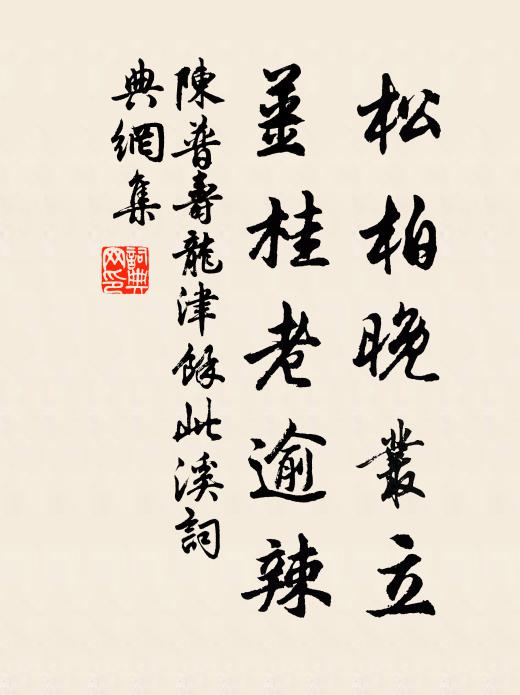 松柏晚叢立
薑桂老逾辣
陳普壽龍津餘此溪詞
典網集
詞典
网印